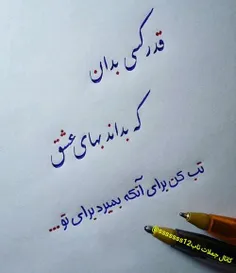 قدر کسی بدان
که بداند بهای عشق
تب کن برای آنکه بمیرد برای تو...
کانال جملات ناب@sssssss12